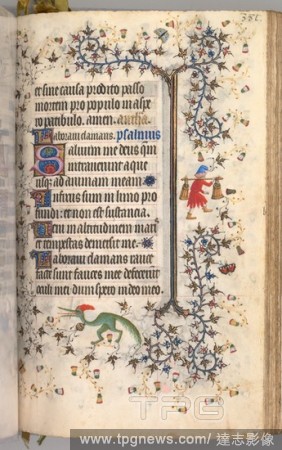 386
et sine causa prodito passo
mortem pro populo in aspe
ro patibulo. amen. antha.
Laboravi clamans. psalmus
Salvum me deus qm
intraverunt aque
usq; ad animam meam
Infixus sum in limo pro
fundi: et non est substancia.
Veni in altitudinem maris
et tempestas demersit me.
Laboravi clamans rauce
facte sunt fauces mee defecerūt
oculi mei dum spero in deo meo.
TPG
www.tpgnews.com/達志影像